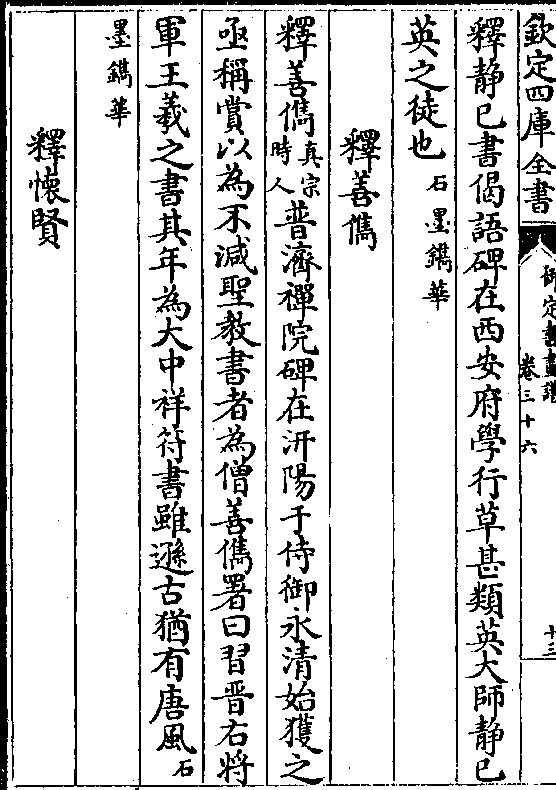 欽定四庫全書
御定書畫譜
卷三十六
十三
釋静已書偈語碑在西安府學行草甚類英大師静已
英之徒也石墨鐫華
釋善儁
釋善儁真宗時人普濟禪院碑在汧陽于侍御永清始獲之
亟稱賞以為不減聖教書者為僧善儁署曰習晉右將
軍王羲之書其年為大中祥符書雖遜古猶有唐風石
墨鐫華
釋懷賢